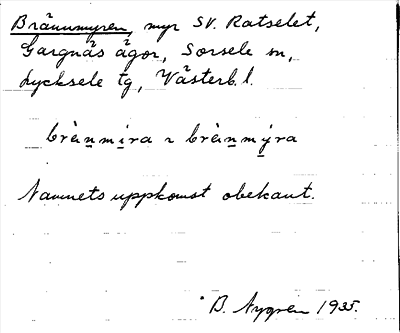 Brännmyren, myr SV. Ratselet,
Gargnäs ägor, Sorsele sn,
Lycksele tg, Västerb. l.
brèn̲mi̲ra ~ brèn̲mý̲ra
Namnets uppkomst obekant.
B. Nygren 1935.